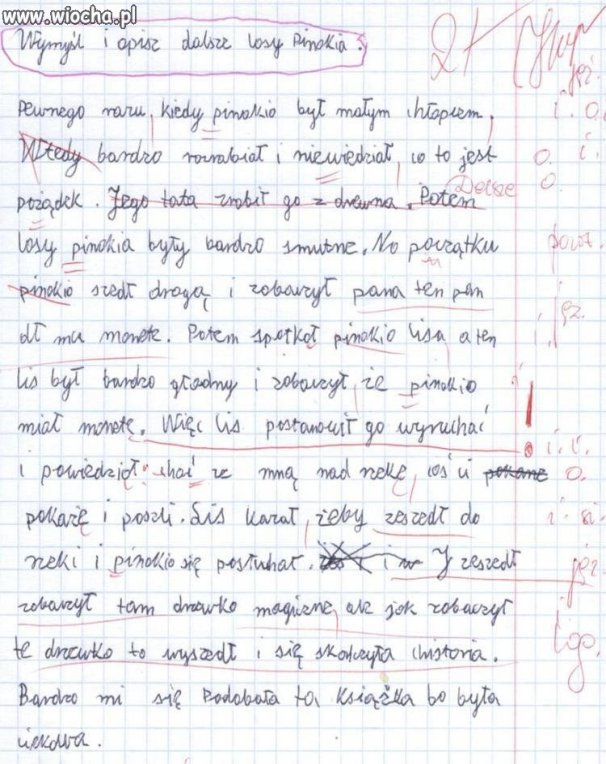 www.wiocha.pl
Wymyśl i opisz dalsze losy Pinokia.
2+
jęz.
Pewnego razu, kiedy pinokio był małym chłopcem, i. o.
Wtedy bardzo rozrabiał i niewiedział, co to jest o. i.
pożądek. Jego tata zrobił go z drewna. Potem Dalsze o.
losy pinokia były bardzo smutne. No początku powt.
pinokio szedł drogą i zobaczył pana ten pan
dł mu monete. Potem spotkoł pinokio lisa a ten i. jęz.
lis był bardzo głodny i zobaczył, że pinokio
miał monetę. Więc lis postanowił go wyruchać !
i powiedział: chać ze mną nad rzekę, coś ci pokane o.
pokażę i poszli. Lis kazał, żeby zeszedł do
rzeki i pinokio się posłuchał. I zeszedł jęz.
zobaczył tam drzewko magiczne, ale jak zobaczył
te drzewko to wyszedł i się skończyła chistoria.
Bardzo mi się Podobała ta książka bo była